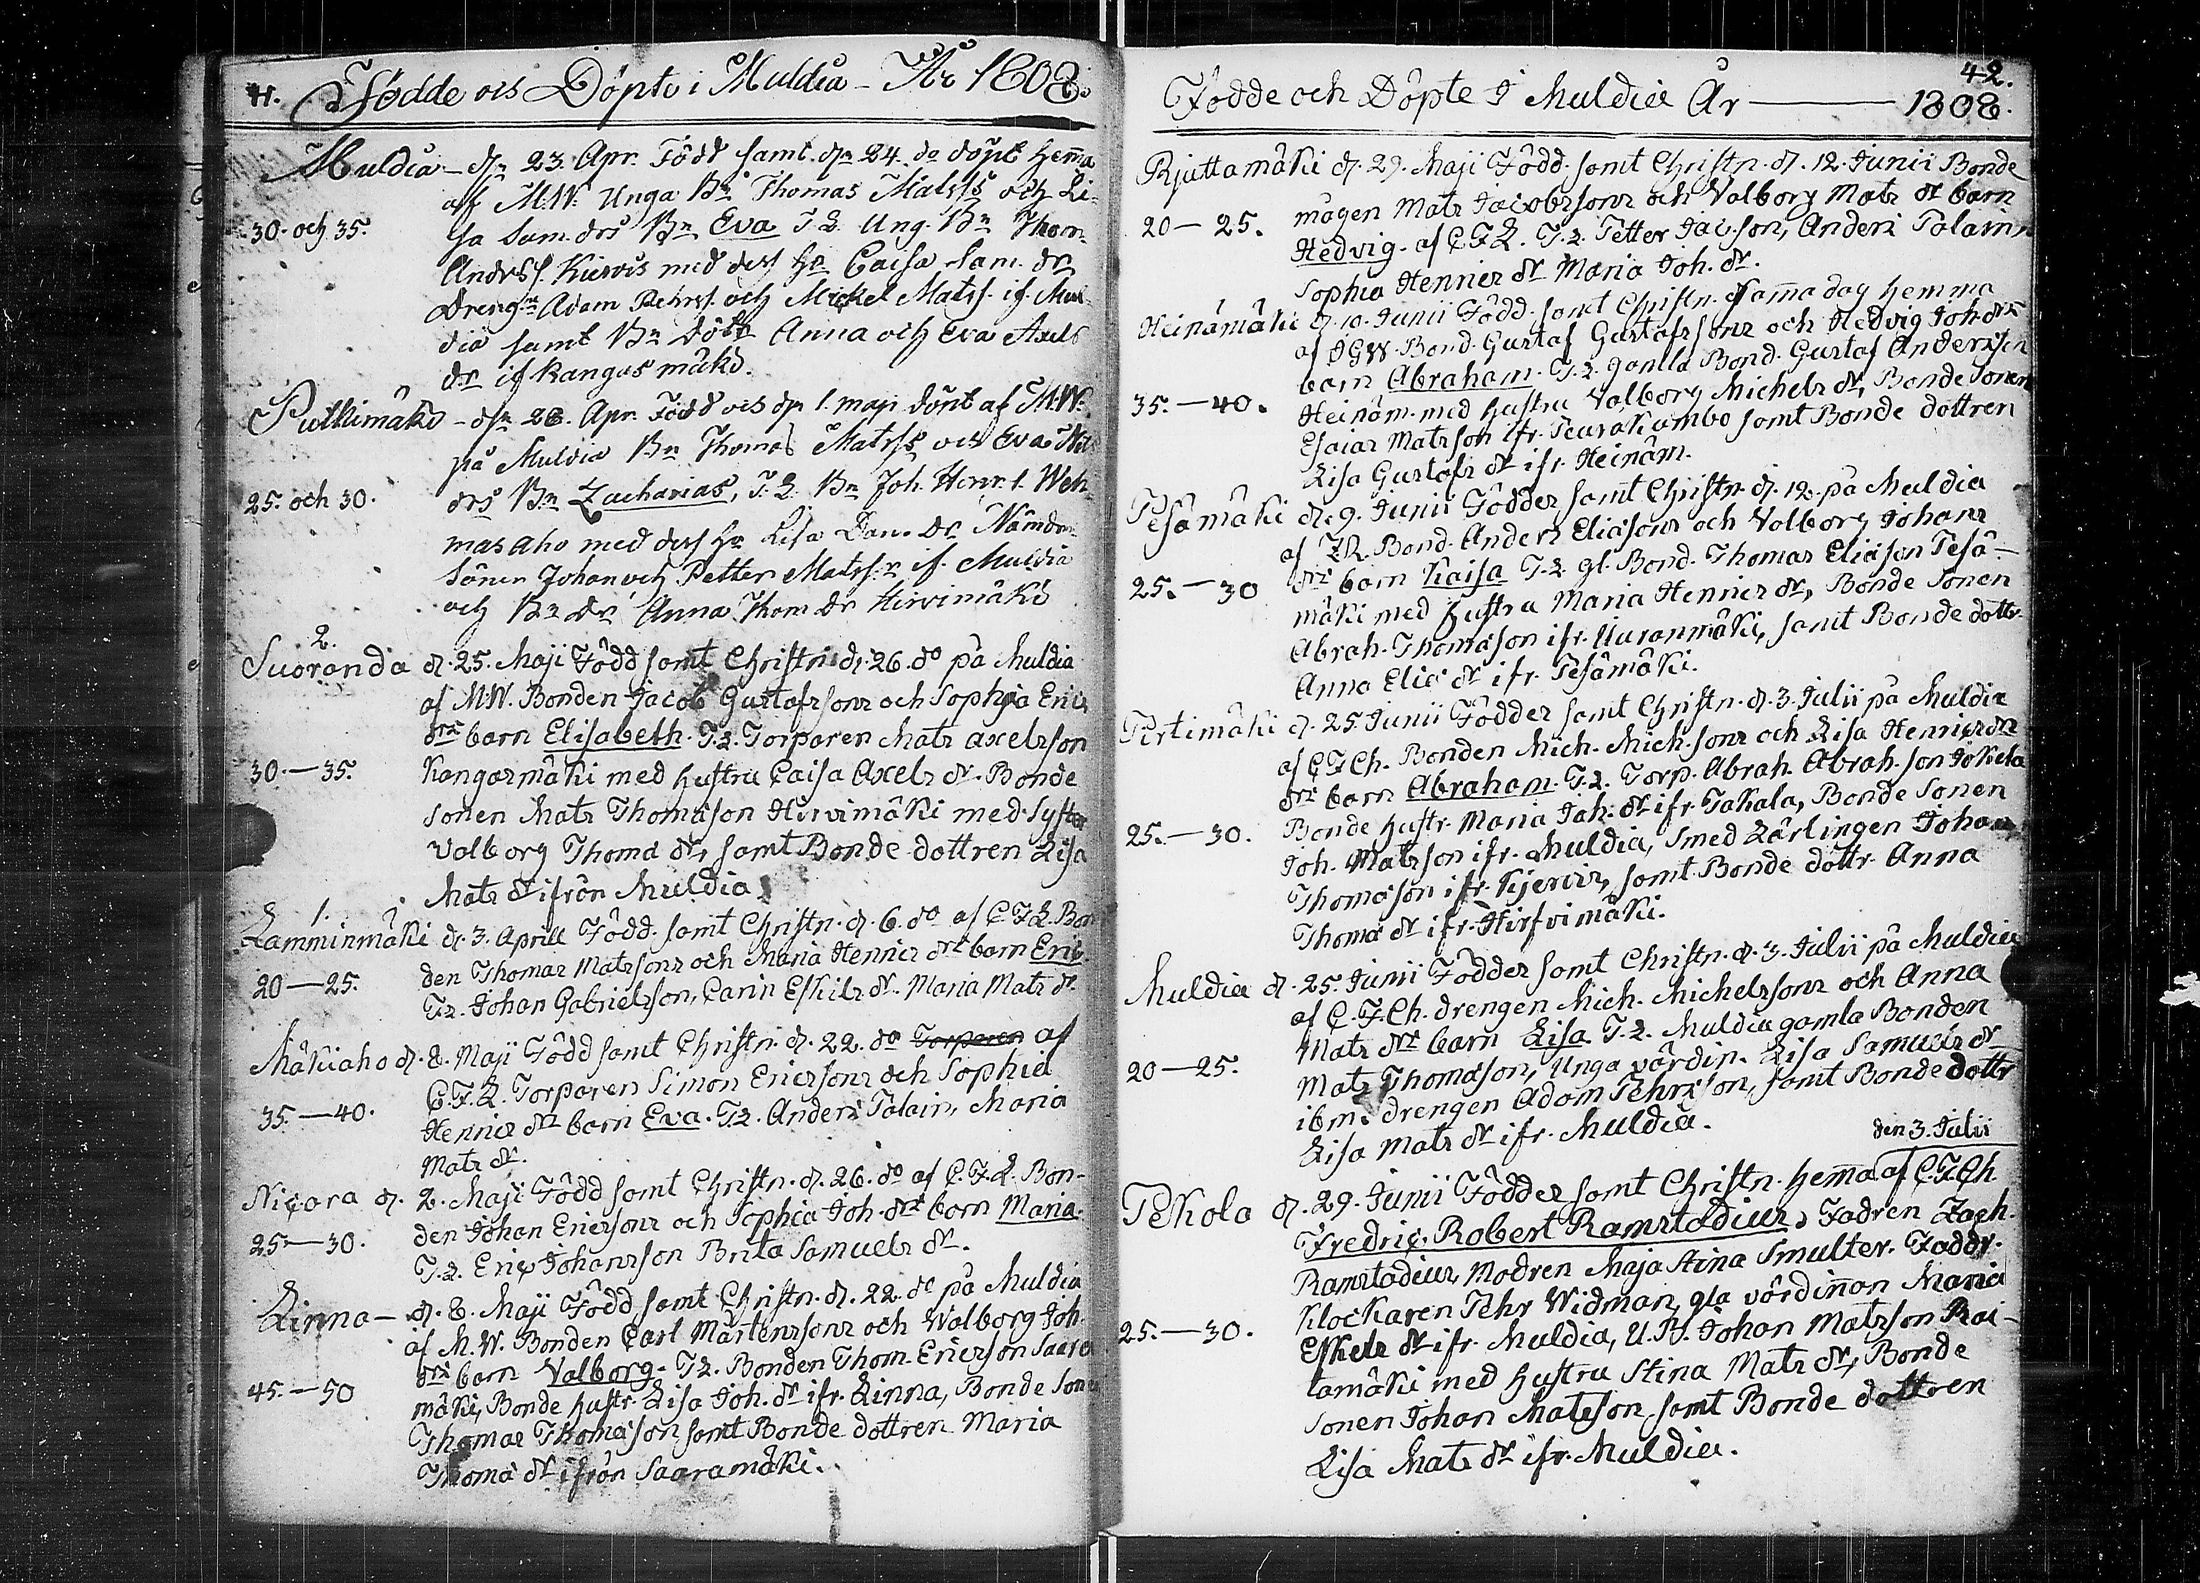 41. Födde och Döpte i Muldia - År 1808.
Muldia - dn 23. Apr. Född samt dn 24. do döpt hem̃a
af M.W. Unga Bn Thomas Matss och Li-
30. och 35. sa Sam. drs Bn Eva T. Z. Ung. Bn Thom.
Andrss. Kiervis med dess Ha Caisa Sam. dr
Drengne Adam Pehrss. och Mickel Matss. if. Mul-
dia samt Bn Döttr Anna och Eva Axels
dr if Kangas mäki.
Putkimäki - dn 28. Apr. Född och dn 1. maji döpt af M.W.
på Muldia Bn Thomas Matsss och Eva Nils
25. och 30. drs Bn Zacharias, T. Z. Bn Joh. Henr. s. Weh-
mas aho med dess Ha Lisa Dan. dr Nämdem
Söner Johan och Petter Matss.r if. Muldia
och Bn dr Anna Thom dr Hirvimäki
2.
Suoranda d. 25. Maji Född samt Christn. d. 26. do på Muldia
af M.W. Bonden Jacob Gustafssons och Sophia Erics
drs barn Elisabeth. T. Z. Torparen Mats Axelsson
30. — 35. Kangasmäki med hustru Caisa Axels dr. Bonde
Sonen Mats Thomasson Hirvimäki med Syster
Valborg Thoma dr, samt Bonde dottren Lisa
Mats dr ifrån Muldia
1.
Lamminmäki d. 3. Aprill Född samt Christn. d. 6. do af C.F.L. Bon
den Thomas Matssons och Maria Henrics drs barn Eric
20 — 25. T. Z. Johan Gabrielsson, Carin Eskils dr. Maria Mats dr.
Mäkiaho d. 8. Maji Född samt Christn. d. 22. do Torparen af
C.F.L. Torparen Simon Ericssons och Sophia
35. — 40. Henrics drs barn Eva. T. Z. Anders Palain, Maria
Mats dr.
Nicara d. 2. Maji Född samt Christn. d. 26. do af C.F.L. Bon-
den Johan Ericssons och Sophia Joh. drs barn Maria.
25 — 30. T. Z. Eric Johansson Brita Samuels dr.
Linna — d. 8. Maji Född samt Christn. d. 22. do på Muldia
af M.W. Bonden Carl Mårtenssons och Walborg Joh.
drs barn Valborg. T. Z. Bonden Thom. Ericsson Saara
45. — 50 mäki, Bonde hustr. Lisa Joh. dr ifr. Linna, Bonde Sonen
Thomas Thomasson samt Bonde dottren Maria
Thoma dr ifrån Saaramäki.
42.
Födde och Döpte I Muldia År — 1808.
Rjuttamäki d. 29. Maji Född samt Christn. d. 12. Junii Bonde
mågen Mats Jacobssons och Valborg Mats dr barn
20 — 25. Hedvig. af C.F.L. T. Z. Petter Jac. son, Anders Palain
Sophia Henrics dr Maria Joh. dr.
Heinämäki d. 10. Junii Född samt Christn. Sam̃a dag hemma
af JGW. Bond. Gustaf Gustafssons och Hedvig Joh drs
barn Abraham. T. Z. gamla Bond. Gustaf Andersson
35. — 40. Heinäm. med hustru Valborg Michels dr, Bonde Sonen
Esaias Matsson ifr. Peurakumbo samt Bonde dottren
Lisa Gustafs dr ifr. Heinäm.
Pesämäki d. 9. Junii Födder samt Christn. d. 12. på Muldia
af ZR. Bond. Anders Eliassons och Volborg Johans
25. — 30 drs barn Kaisa T. Z. gl. Bond. Thomas Eliasson Pesä-
mäki med hustru Maria Henrics dr, Bonde Sonen
Abrah. Thomasson ifr. Uuranmäki, samt Bonde dottr.
Anna Elia dr ifr. Pesämäki.
Pirtimäki d. 25. Junii Födder samt Christn. d. 3. Julii på Muldia
af C.F.Ch. Bonden Mich. Mich. sons och Lisa Henrics
drs barn Abraham. T. Z. Torp. Abrah. Abrah. son Jokela
25. — 30. Bonde hustr. Maria Joh. dr ifr. Takala, Bonde Sonen
Joh. Matsson ifr. Muldia, Smed Lärlingen Johan
Thomasson ifr. Kjervis, samt Bonde dottr. Anna
Thoma dr ifr. Hirfvimäki.
Muldia d. 25. Junii Födder samt Christn. d. 3. Julii på Muldia
af C.F.Ch. drengen Mich. Michelssons och Anna
Mats drs barn Lisa. T. Z. Muldia gamla Bonden
20 — 25. Mats Thomasson, Unga värdin. Lisa Samuels dr
ibm. drengen Adam Pehrsson, samt Bonde dottr
Lisa Mats dr ifr. Muldia.
den 3. Julii
Pekola d. 29. Junii Födder samt Christn. hem̃a af C.F.Ch.
Fredric Robert Ramstadius, Fadren Zach.
Ramstadius, Modren Maja Stina Smulter. Faddr.
Klockaren Pehr Widman, gla värdin̄an Maria
25. — 30. Eskels dr ifr. Muldia, U. B. Johan Matsson Rai-
tamäki med hustru Stina Mats dr, Bonde
Sonen Johan Matsson samt Bonde dottren
Lisa Mats dr ifr. Muldia.